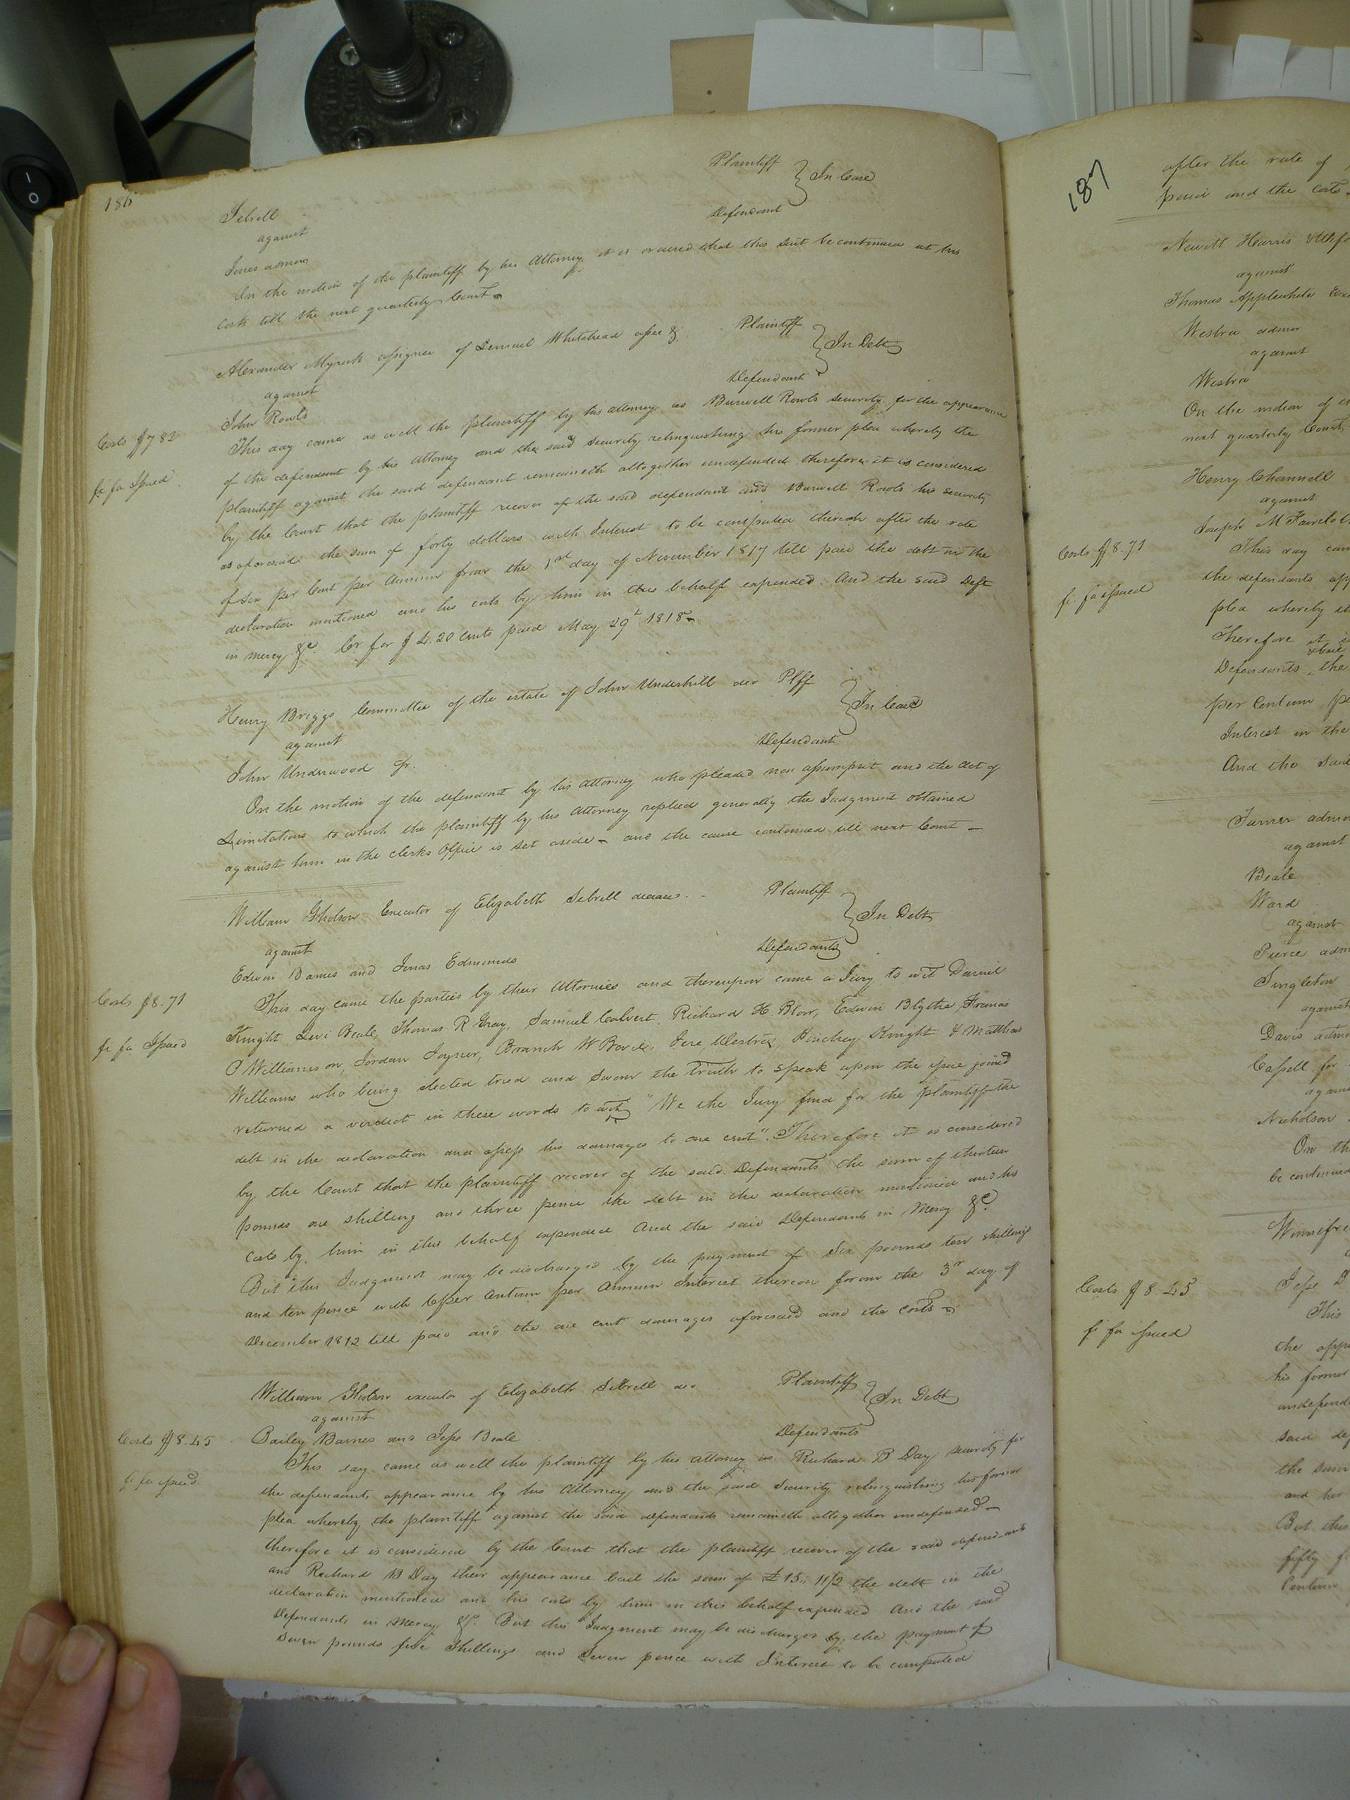 186
Sebrell Plaintiff
against } In Case
Jones admor Defendant
On the motion of the plaintiff by his Attorney it is ordered that this Suit be continued at his
Costs till the next quarterly Court
Alexander Myrick assignee of Lemuel Whitehead assee &c Plaintiff
against } In Debt
John Rowls Defendant
Costs $7 82
fi fa Issued
This day came as well the plaintiff by his attorney as Burwell Rowls security for the appearance
of the defendant by his Attorney and the said Security relinquishing his former plea whereby the
plaintiff against the said defendant remaineth altogether undefended therefore it is considered
by the Court that the plaintiff recover of the said defendant and Burwell Rowls his security
as aforesaid the sum of forty dollars with Interest to be computed thereon after the rate
of Six per Cent per Annum from the 1st day of November 1817 till paid the debt in the
declaration mentioned and his costs by him in this behalf expended. And the said Deft
in mercy &c Cr for $4.20 Cents paid May 29th 1818
Henry Briggs Committee of the estate of John Underhill dec Plff
against } In Case
John Underwood Jr. Defendant
On the motion of the defendant by his attorney who pleaded non assumpsit and the Act of
Limitations to which the plaintiff by his Attorney replied generally the Judgment obtained
against him in the Clerks Office is Set aside and the cause continued till next Court
William Gholson Executor of Elizabeth Sebrell decease Plaintiff
against } In Debt
Edwin Barnes and Jonas Edmunds Defendants
Costs $8.71
fi fa Issued
This day came the parties by their Attornies and thereupon came a Jury to wit Daniel
Knight Levi Beale, Thomas R Gray, Samuel Calvert, Richard H Blow, Edwin Blythe, Francis
O Williamson, Jordan Joyner, Branch W Jere Westra, Pinchey Knight & Matthew
Williams who being elected tried and Sworn the truth to speak upon the issue joined
returned a verdict in these words to wit "We the Jury find for the plaintiff the
debt in the declaration and assess his damages to one cent". Therefore it is considered
by the Court that the plaintiff recover of the said Defendants the sum of thirteen
pounds one shilling and three pence the debt in the declaration mentioned and his
costs by him in this behalf expended And the said Defendants in Mercy &c.
But this Judgment may be discharged by the payment of Six pounds ten shillings
and ten pence with 6 per Centum per Annum Interest thereon from the 3rd day of
December 1812 till paid and the one cent damages aforesaid and the costs
William Gholson executor of Elizabeth Sebrell dec. Plaintiff
against } In Debt
Bailey Barnes and Jesse Beale Defendants
Costs $8.45
fi fa issued
This day came as well the plaintiff by his attorney as Richard B Day security for
the defendants appearance by his Attorney and the said Security relinquishing his former
plea whereby the plaintiff against the said defendants remaineth altogether undefended
therefore it is considered by the Court that the plaintiff recover of the said defendants
and Richard B Day their appearance bail the sum of £15. 11/2 the debt in the
declaration mentioned and his costs by him in this behalf expended And the said
Defendants in Mercy &c. But this Judgment may be discharged by the payment of
Seven pounds five Shillings and Seven pence with Interest to be computed
187
after the rate of
paid and the costs
Newitt Harris
against
Thomas Applewhite
Westra admor
against
Westra
On the motion of
next quarterly Court
Henry Channell
against
Joseph
Costs $8.71
fi. fa issued
This day
the defendants
plea whereby
Therefore it
Defendants the
per Centum
Interest in the
And the said
Turner admor
against
Beale
Ward
against
Pierce
Singleton
against
Davis
Cassell for
Nicholson
On the
be continued
Costs $8 45
fi fa issued
This
the
his former
said
the sum
and his
But this
fifty
Centum